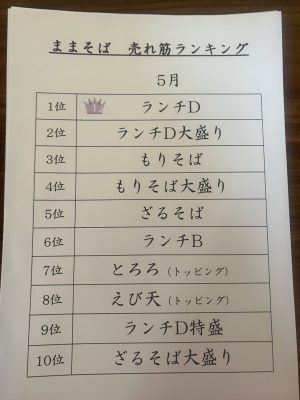 ままそば 売れ筋ランキング
5月
1位 1 ランチD
2位 ランチD大盛り
3位 もりそば
4位 もりそば大盛り
5位 ざるそば
6位 ランチB
7位 とろろ(トッピング)
8位 えび天(トッピング)
9位 ランチD特盛
10位 ざるそば大盛り